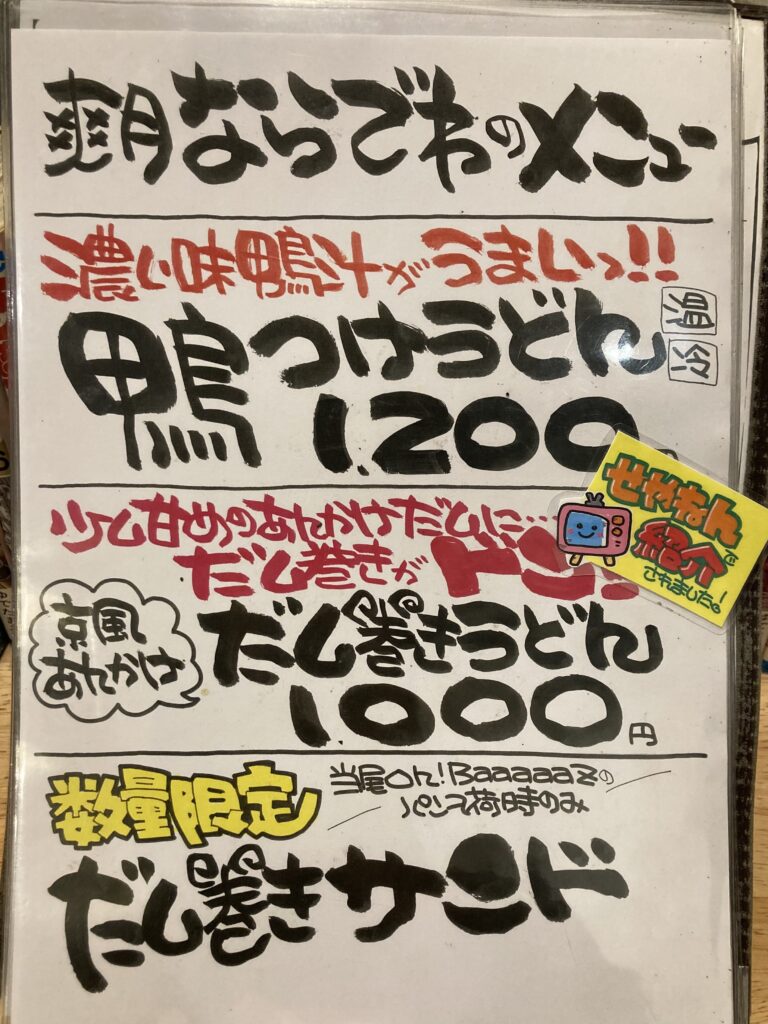 爽月ならでわのメニュー
濃い味鴨汁がうまいっ!!
鴨つけうどん
1,200
少し甘めのあんかけだしに…
だし巻きが
せやねんで
紹介
されました!
京風
あんかけ
だし巻きうどん
1,000円
数量限定
パン入荷時のみ
だし巻きサンド